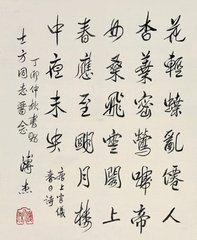 花輕蝶亂僊人
杏葉密鶯啼帝
女桑飛雲閣上
春應至明月樓
中夜未央
唐上官儀
春日詩
丁卯仲秋書貽
士方同志留念
溥杰